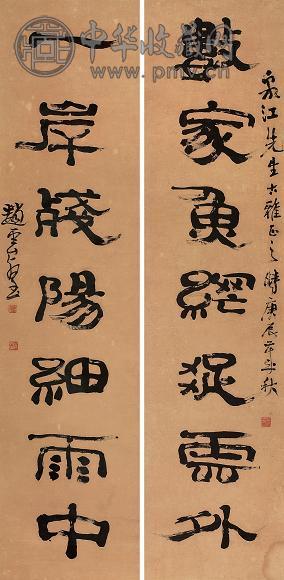 中华收藏网
www.pmv.cn
江先生大雅正之 時庚辰年秋
數家魚網疏雲外
一岸殘陽細雨中
趙雲壑